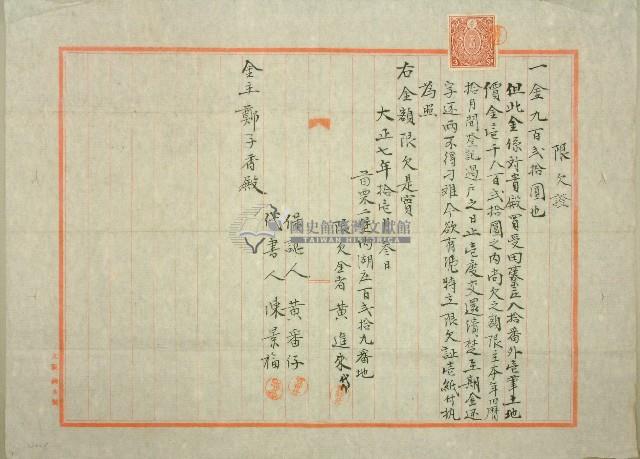 限欠證
一金九百弍拾圓也
但此金係對貴殿買受田藔庄八拾番外壱筆土地
價金壱千八百弍拾圓之內尚欠之額限至本年旧曆
拾月間登記過戶之日止壱度交還清楚至期金還
字还兩不得刁难今欲有憑特立限欠証壱紙付执
為照
右金額限欠是實
大正七年拾壱月叁日
苗栗二堡 湖庄百弍拾九番地
限欠金者 黃進來
保認人 黃番仔
代書人 陳景福
金主 鄭子香殿
國史館臺灣文獻館
TAIWAN HISTORICA